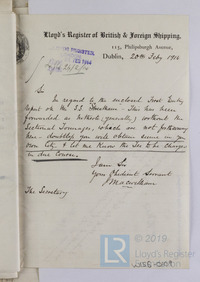 Lloyd's Register of British & Foreign Shipping,
115, Philipsburgh Avenue,
Dublin, 20th Feby 1914
FEB 1914
Sir
In regard to the enclosed First Entry
Report on the S.S. - This has been
forwarded as hitherto (generally) without the
Sectional Tonnages, which are not forthcoming
here - doubtless you will obtain same in you
own City, & let me know the fee to be charged
in due course.
I am Sir
Your Obedient Servant
The Secretary
LR
© 2019
Lloyd's Register